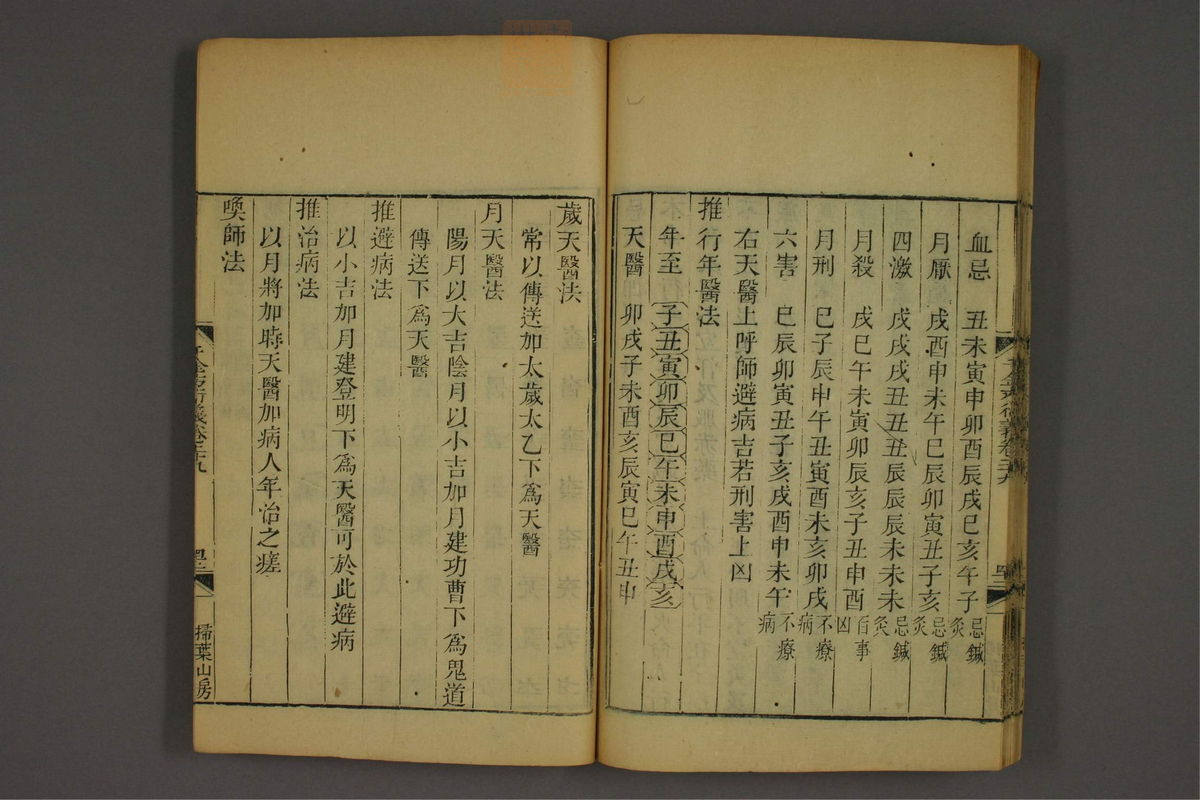 血忌　丑未寅申卯酉辰戌巳亥午子 忌鍼灸
月厭　戌酉申未午巳辰卯寅丑子亥 忌鍼灸
四激　戌戌戌丑丑丑辰辰辰未未未 忌鍼灸
月殺　戌巳午未寅卯辰亥子丑申酉 百事凶
月刑　巳子辰申午丑寅酉未亥卯戌 不療病
六害　巳辰卯寅丑子亥戌酉申未午 不療病
右天醫上呼師避病吉若刑害上凶
推行年醫法
年至　子丑寅卯辰巳午未申酉戌亥
天醫　卯戌子未酉亥辰寅巳午丑申
歲天醫法
常以傳送加太歲太乙下爲天醫
月天醫法
陽月以大吉陰月以小吉加月建功曹下爲鬼道
傳送下爲天醫
推避病法
以小吉加月建登明下爲天醫可於此避病
推治病法
以月將加時天醫加病人年治之瘥
喚師法
千金方衍義卷二十九
掃葉山房